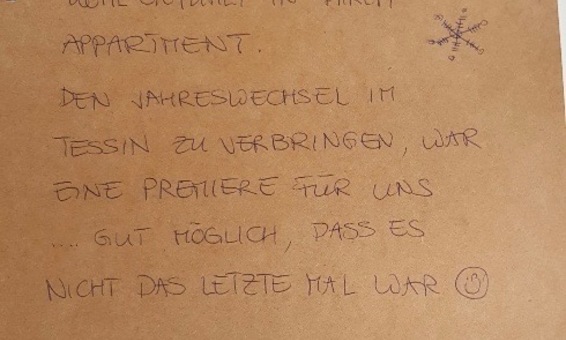 WOHL GEFÜHLT IN IHREM
APPARTMENT.
DEN JAHRESWECHSEL IM
TESSIN ZU VERBRINGEN, WAR
EINE PREMIERE FÜR UNS
.... GUT MÖGLICH, DASS ES
NICHT DAS LETZTE MAL WAR ☺